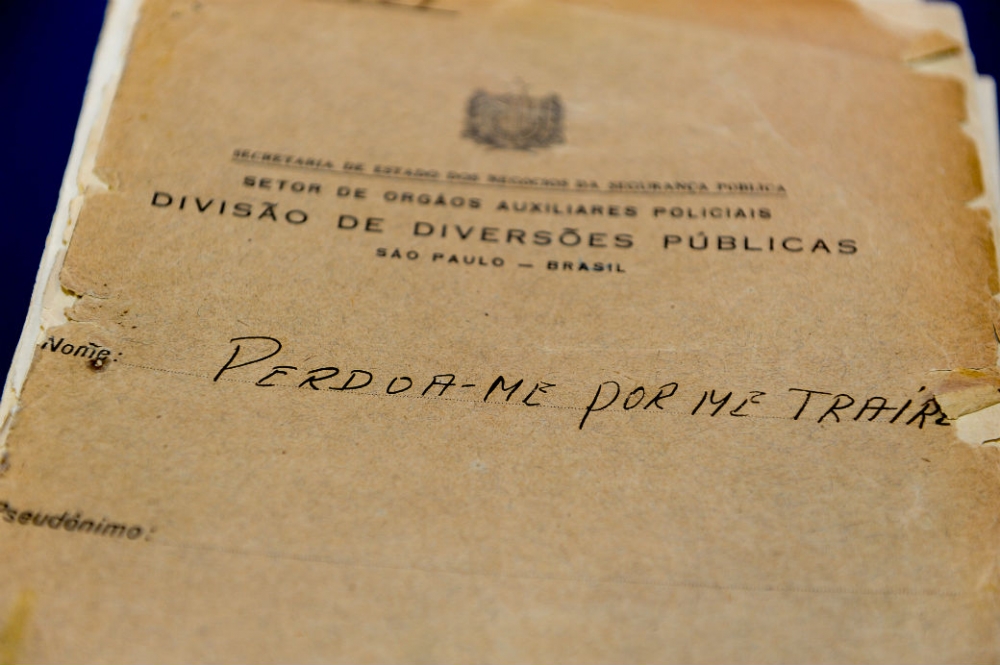 SECRETARIA DE ESTADO DOS NEGOCIOS DA SEGURANÇA PÚBLICA
SETOR DE ORGÃOS AUXILIARES POLICIAIS
DIVISÃO DE DIVERSÕES PÚBLICAS
SÃO PAULO — BRASIL
Nome: PERDOA-ME POR ME TRAÍRES
Pseudônimo: